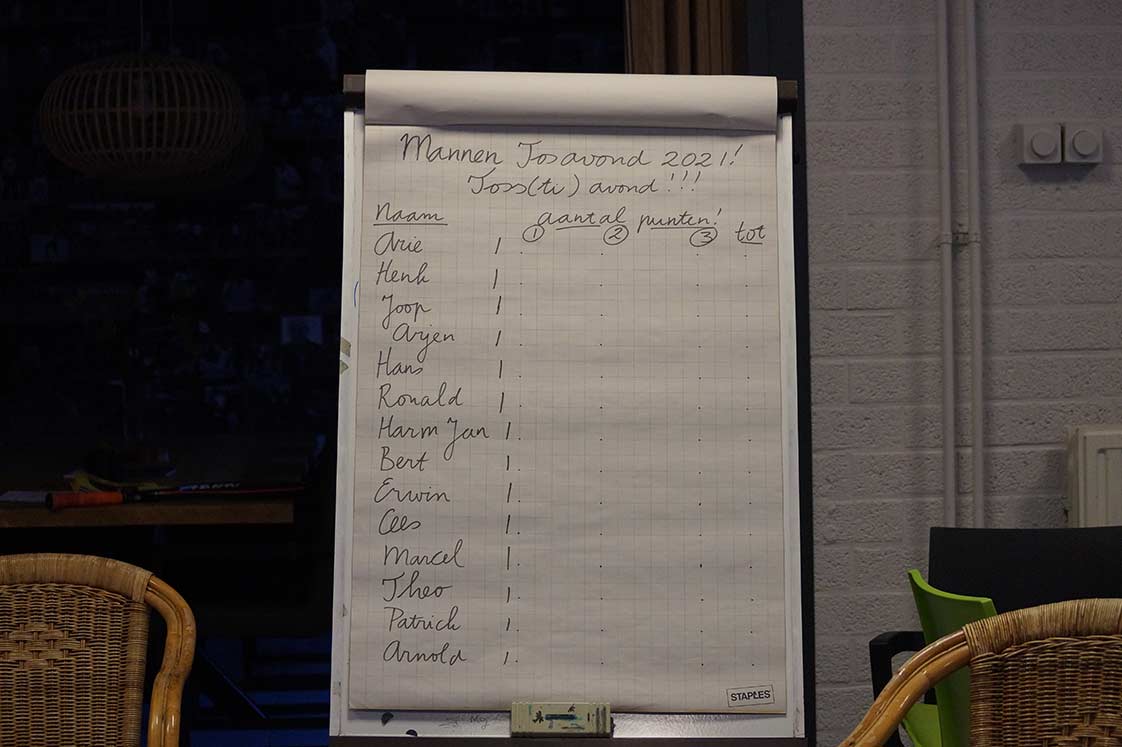 Mannen Tosavond 2021!
Toss(ti) avond!!!
Naam aantal punten!
1 2 3 tot
Arie
Henk
Joop
Arjen
Hans
Ronald
Harm Jan
Bert
Erwin
Cees
Marcel
Theo
Patrick
Arnold
STAPLES